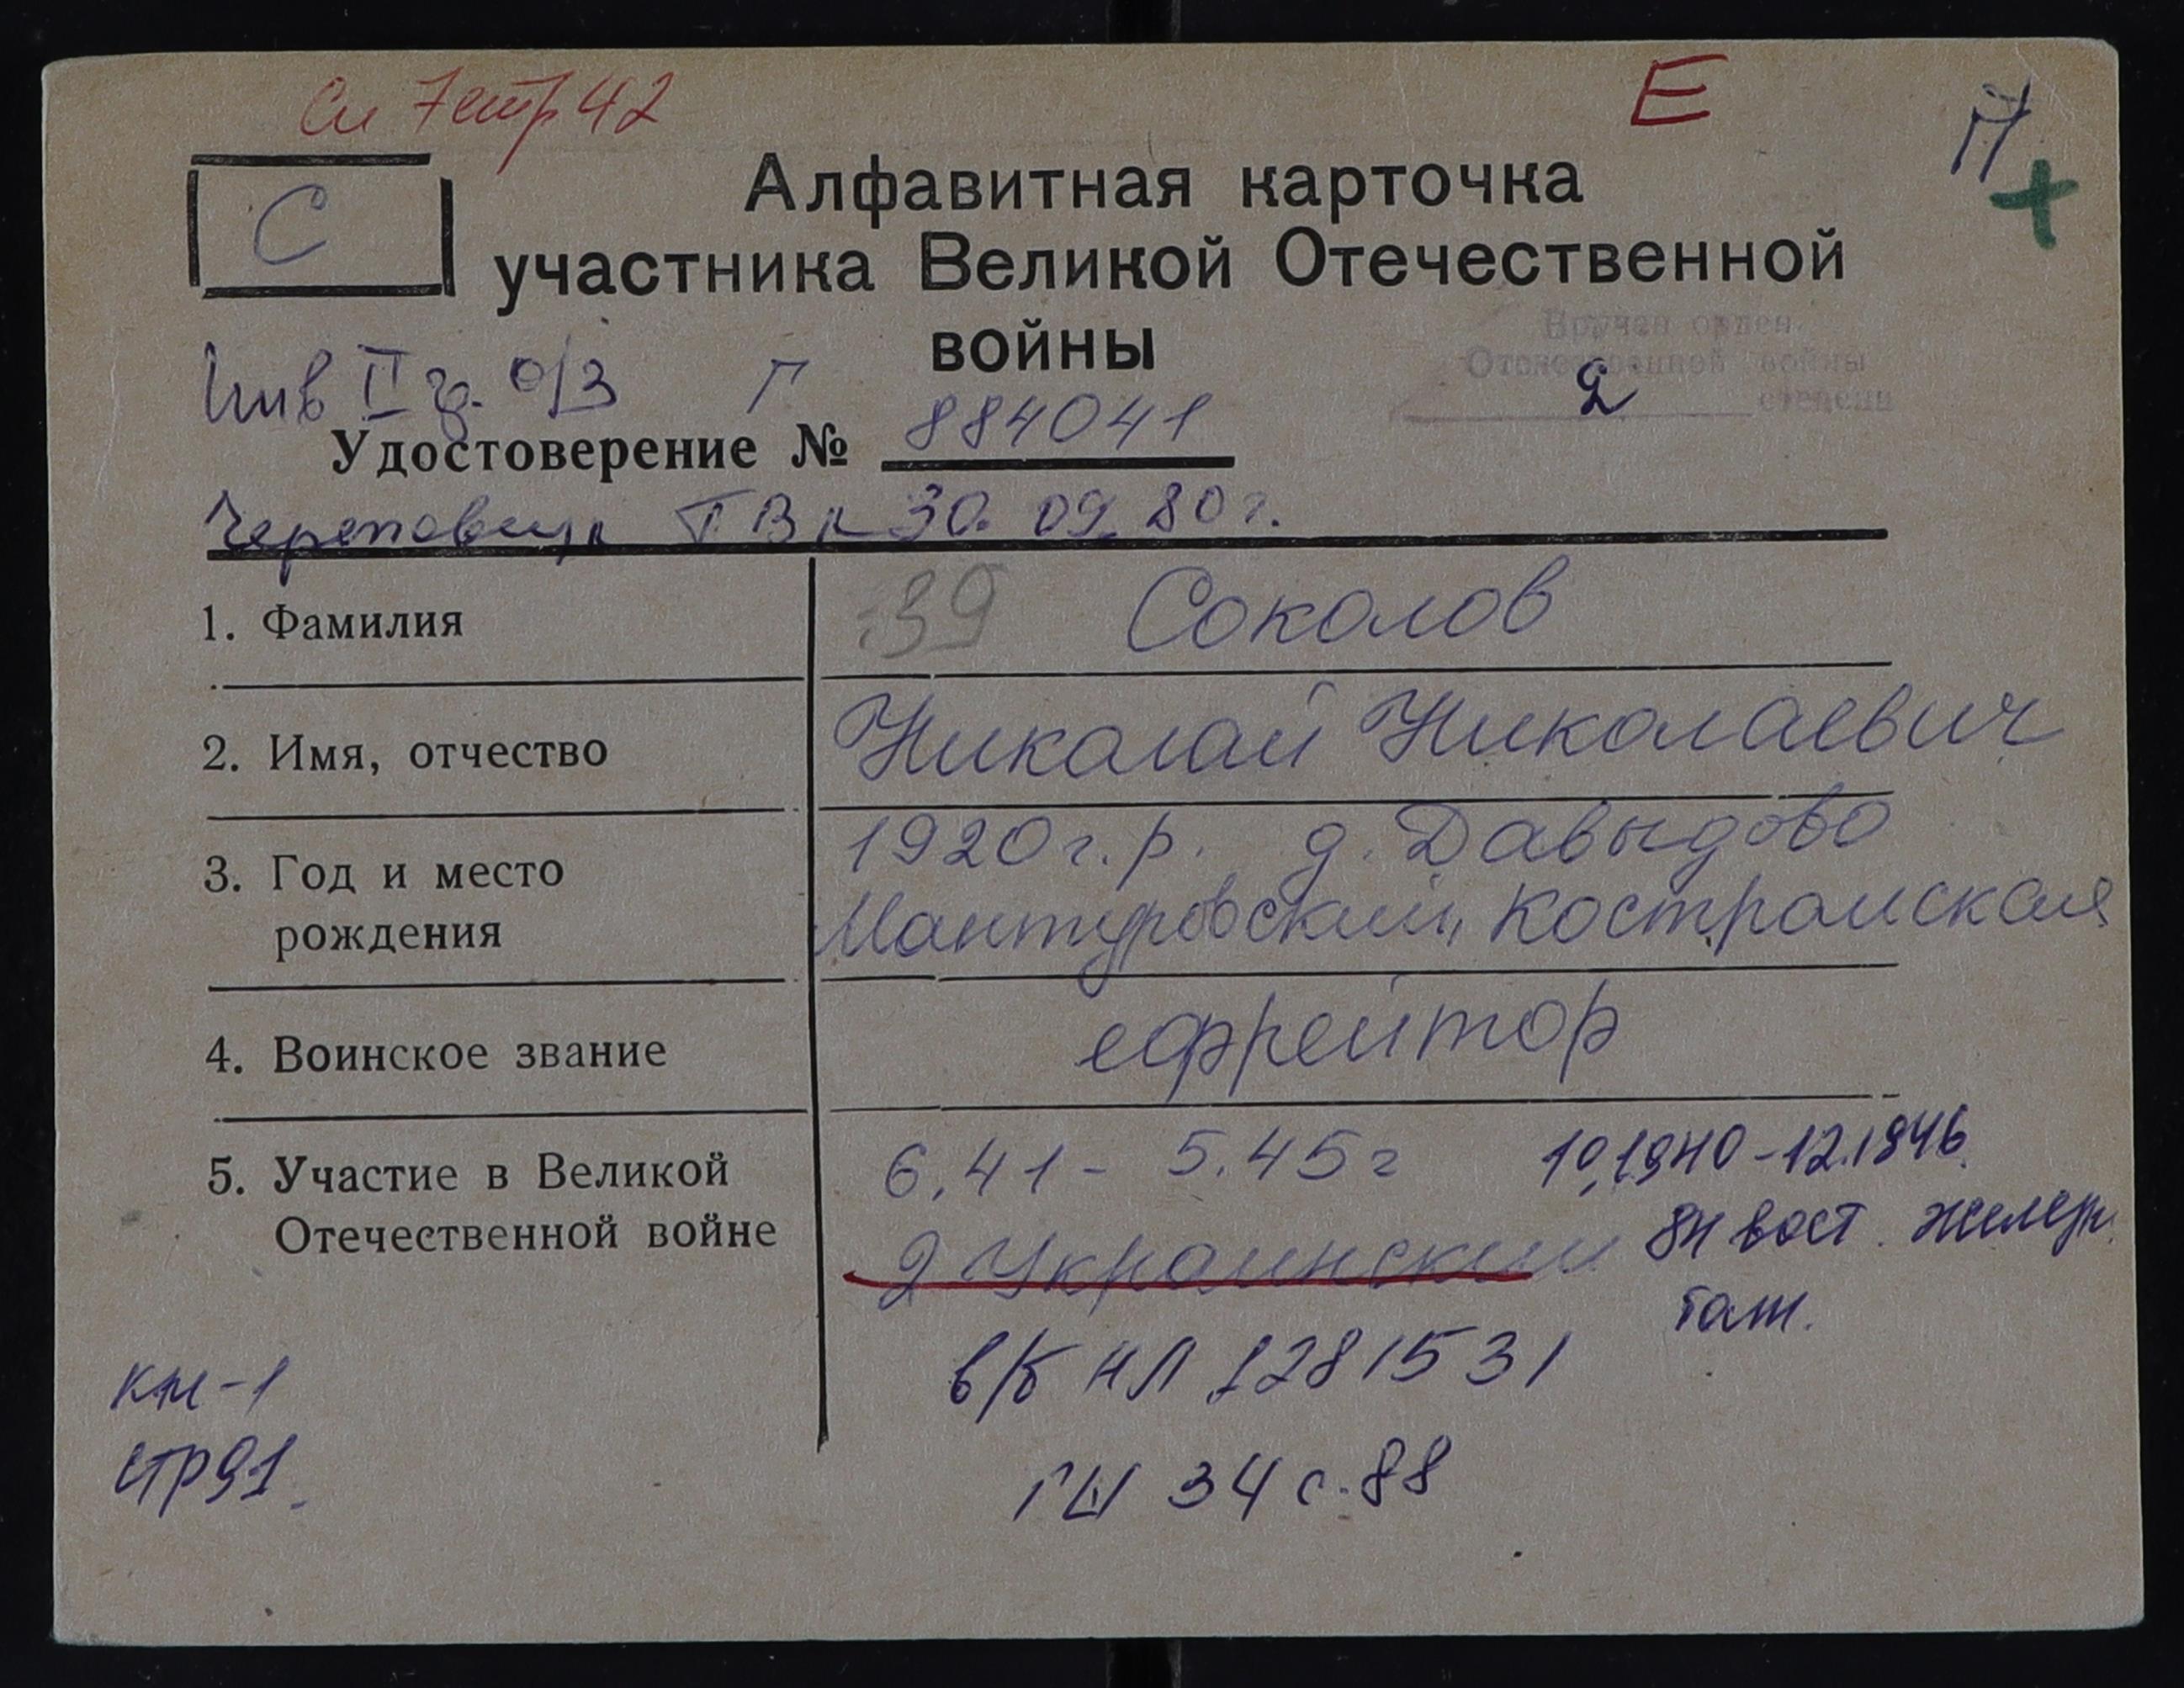 Сп 7 стр 42
Е
П
+
С
Алфавитная карточка
участника Великой Отечественной
войны
Вручен орден
Отечественной войны
2 степени
Инв II гр. о/з Г
Удостоверение № 884041
Череповецк ГВК 30.09.80 г.
1. Фамилия
39 Соколов
2. Имя, отчество
Николай Николаевич
3. Год и место
рождения
1920 г.р. д. Давыдово
Мантуровский, Костромская
4. Воинское звание
ефрейтор
5. Участие в Великой
Отечественной войне
6.41 - 5.45 г
10.1940-12.1946
2 Украинский
84 вост. железн.
бат.
в/б НЛ 1281531
ГШ 34 с.88
кн-1
стр 91.